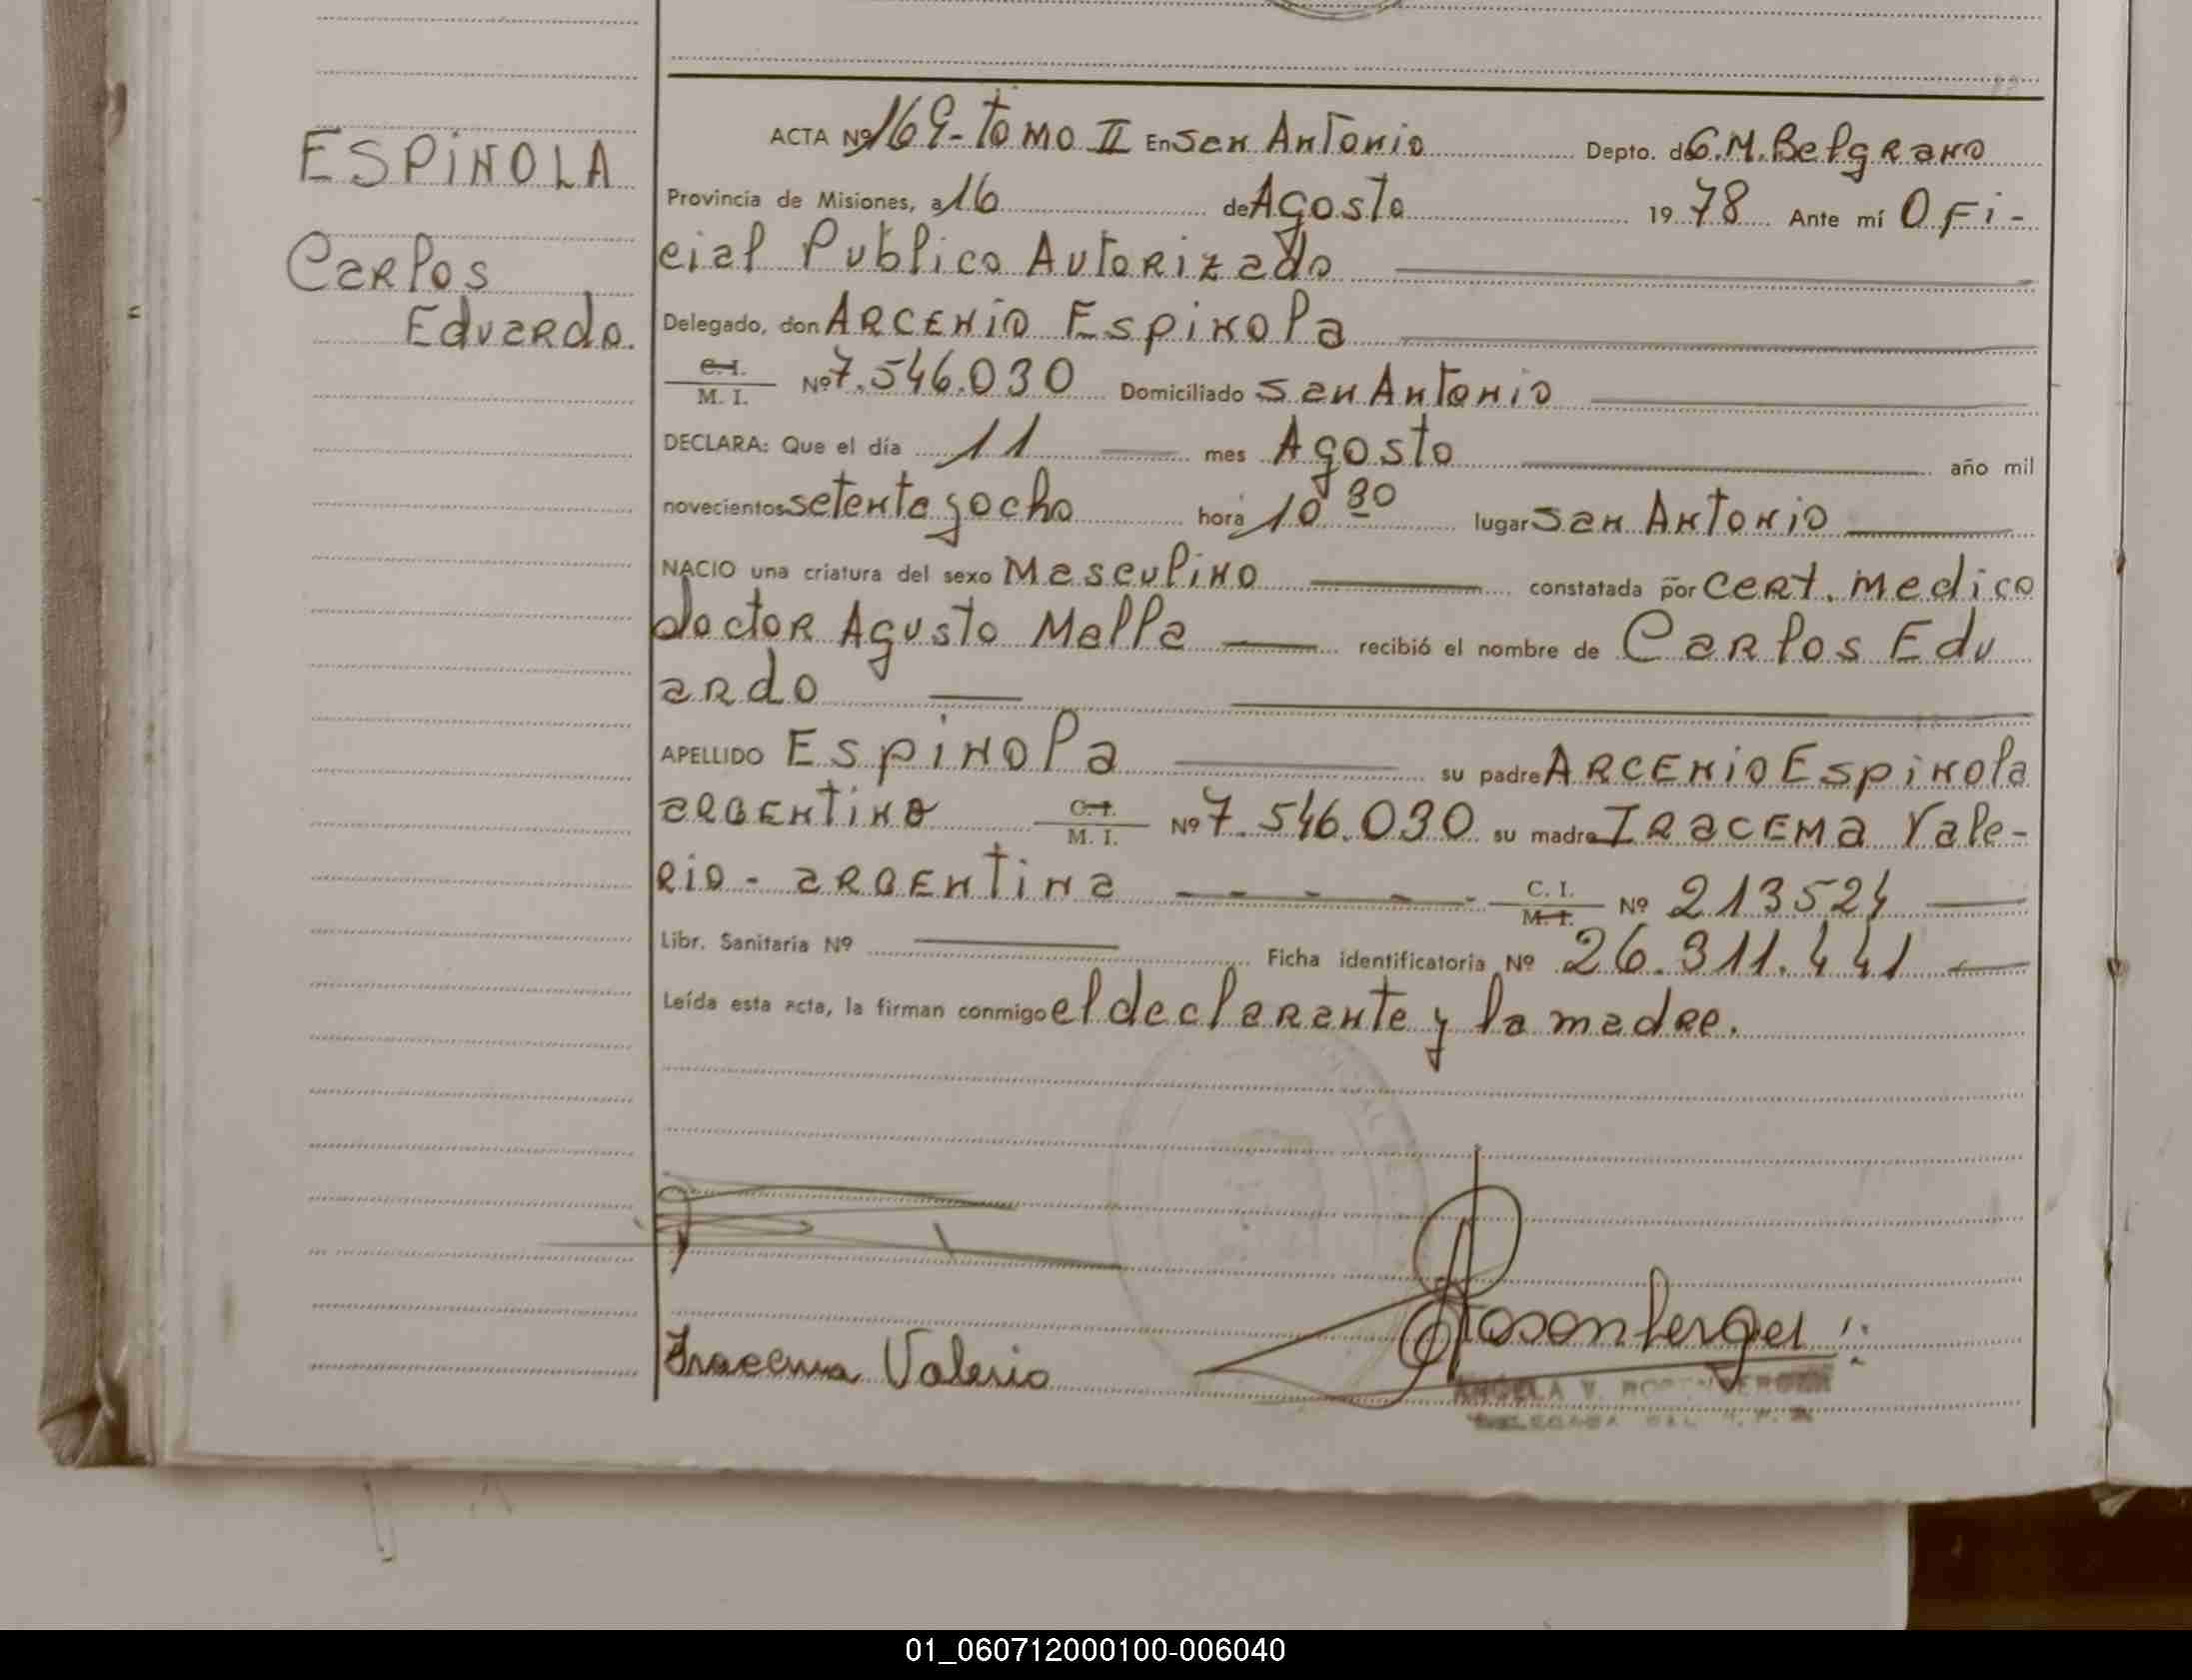 ESPINOLA
Carlos
Eduardo.
ACTA Nº 169-tomo II En San Antonio Depto. d G.M.Belgrano
Provincia de Misiones, a 16 de Agosto 1978 Ante mí Ofi-
cial Publico Autorizado
Delegado, don ARCENIO Espinola
C.I. / M. I. Nº 7.546.030 Domiciliado San Antonio
DECLARA: Que el día 11 mes Agosto año mil
novecientos setenta y ocho hora 10 30 lugar San Antonio
NACIO una criatura del sexo Masculino constatada por cert. medico
doctor Agusto Mella recibió el nombre de Carlos Edu
ardo
APELLIDO Espinola su padre ARCENIO Espinola
argentino C.I. / M. I. Nº 7.546.030 su madre IRACEMA Vale-
rio - argentina C. I. / M.I. Nº 213524
Libr. Sanitaria Nº Ficha identificatoria Nº 26.311.441
Leída esta acta, la firman conmigo el declarante y la madre.
Iracema Valerio
Rosenberger
ANGELA V. ROSENBERGER
DELEGADA DEL
01_060712000100-006040